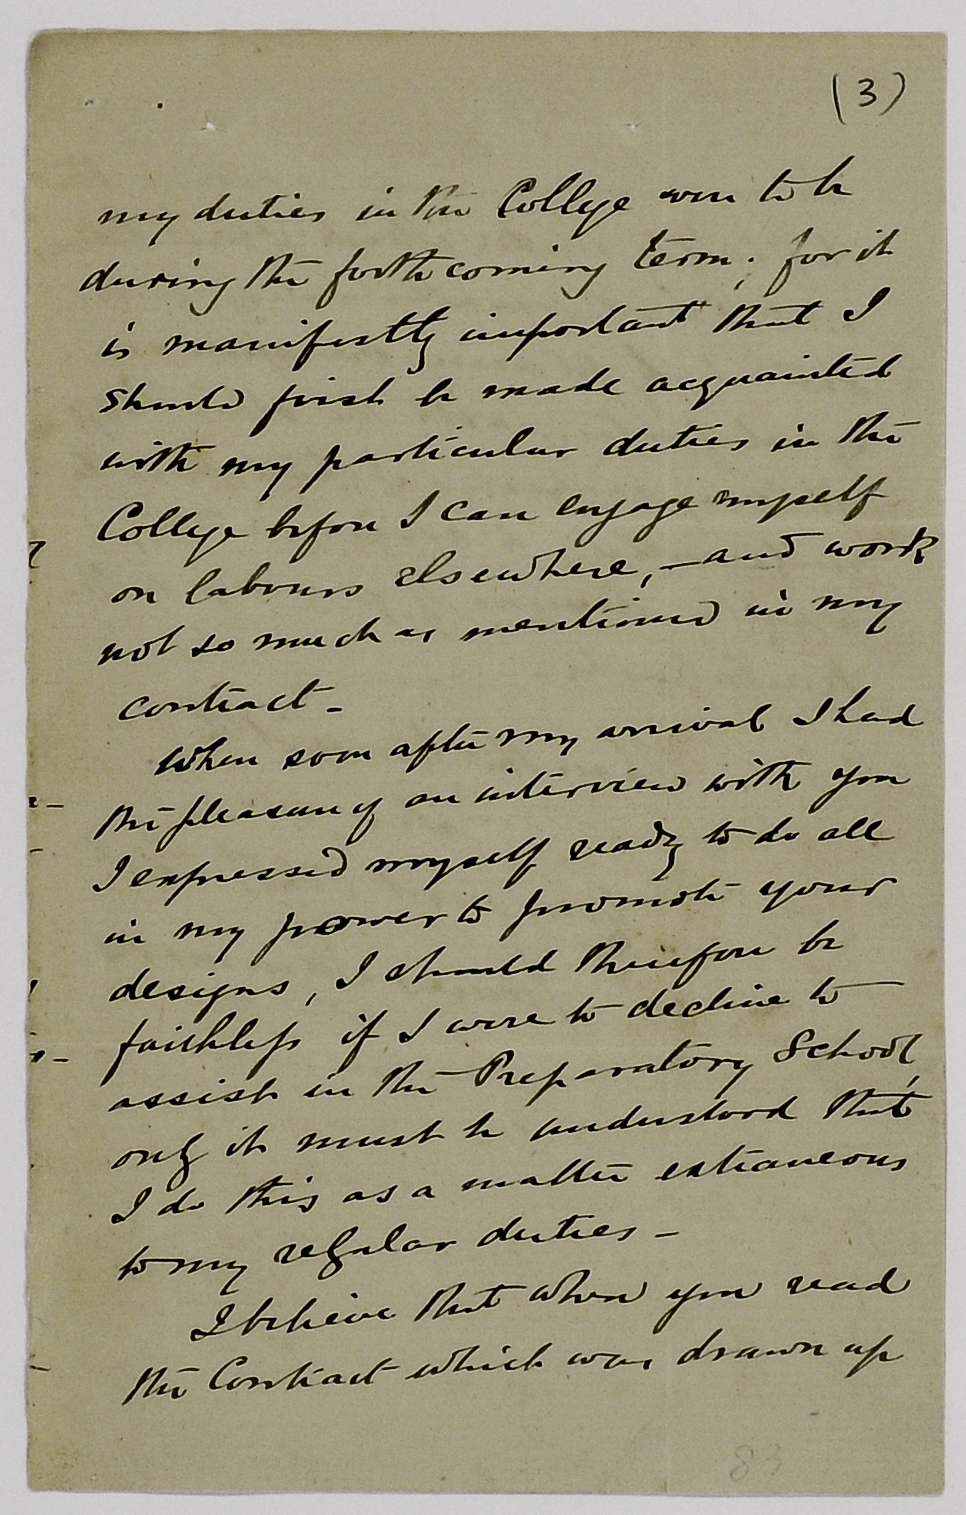 (3)
my duties in the College were to be
during the forthcoming term; for it
is manifestly important that I
should first be made acquainted
with my particular duties in the
College before I can engage myself
on labours elsewhere, – and work
not so much as mentioned in my
contract –
When soon after my arrival I had
the pleasure of an interview with you
I expressed myself ready to do all
in my power to promote your
designs, I should therefore be
faithless if I were to decline to
assist in the Preparatory School,
only it must be understood that
I do this as a matter extraneous
to my regular duties –
I believe that when you read
the Contract which was drawn up
83